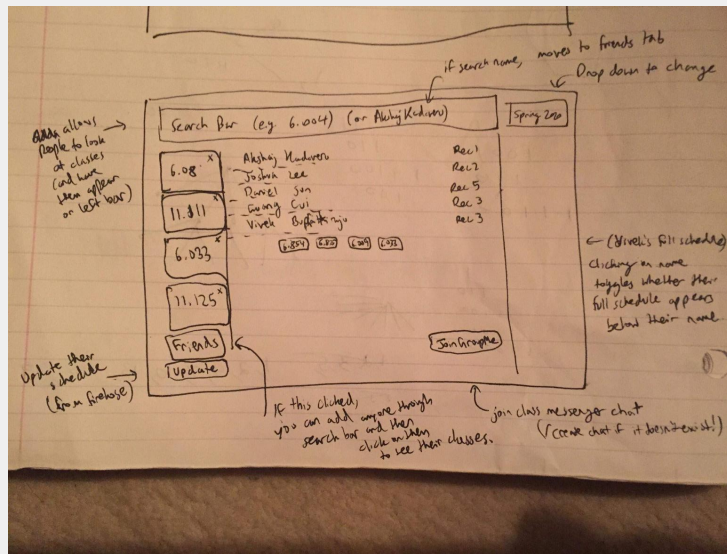 if search name, moves to friends tab
Drop down to change
Search Bar (eg. 6.004) (or Akshaj Kadaveru)
Spring 2020
allows
people to look
at classes
(and have
them appear
on left bar)
6.08 x
11.111 x
6.033 x
11.125 x
Friends
Update
Akshaj Kadaveru Rec 1
Joshua Lee Rec 2
Daniel Sun Rec 5
Guang Cui Rec 3
Vivek Rec 3
6.854 6.033
Join GroupMe
← (Vivek's full schedule)
clicking on name
toggles whether their
full schedule appears
below their name
Update their
schedule
(from firehose)
If this clicked,
you can add anyone through
search bar and then
click on them
to see their classes.
join class messenger chat
(create chat if it doesn't exist!)